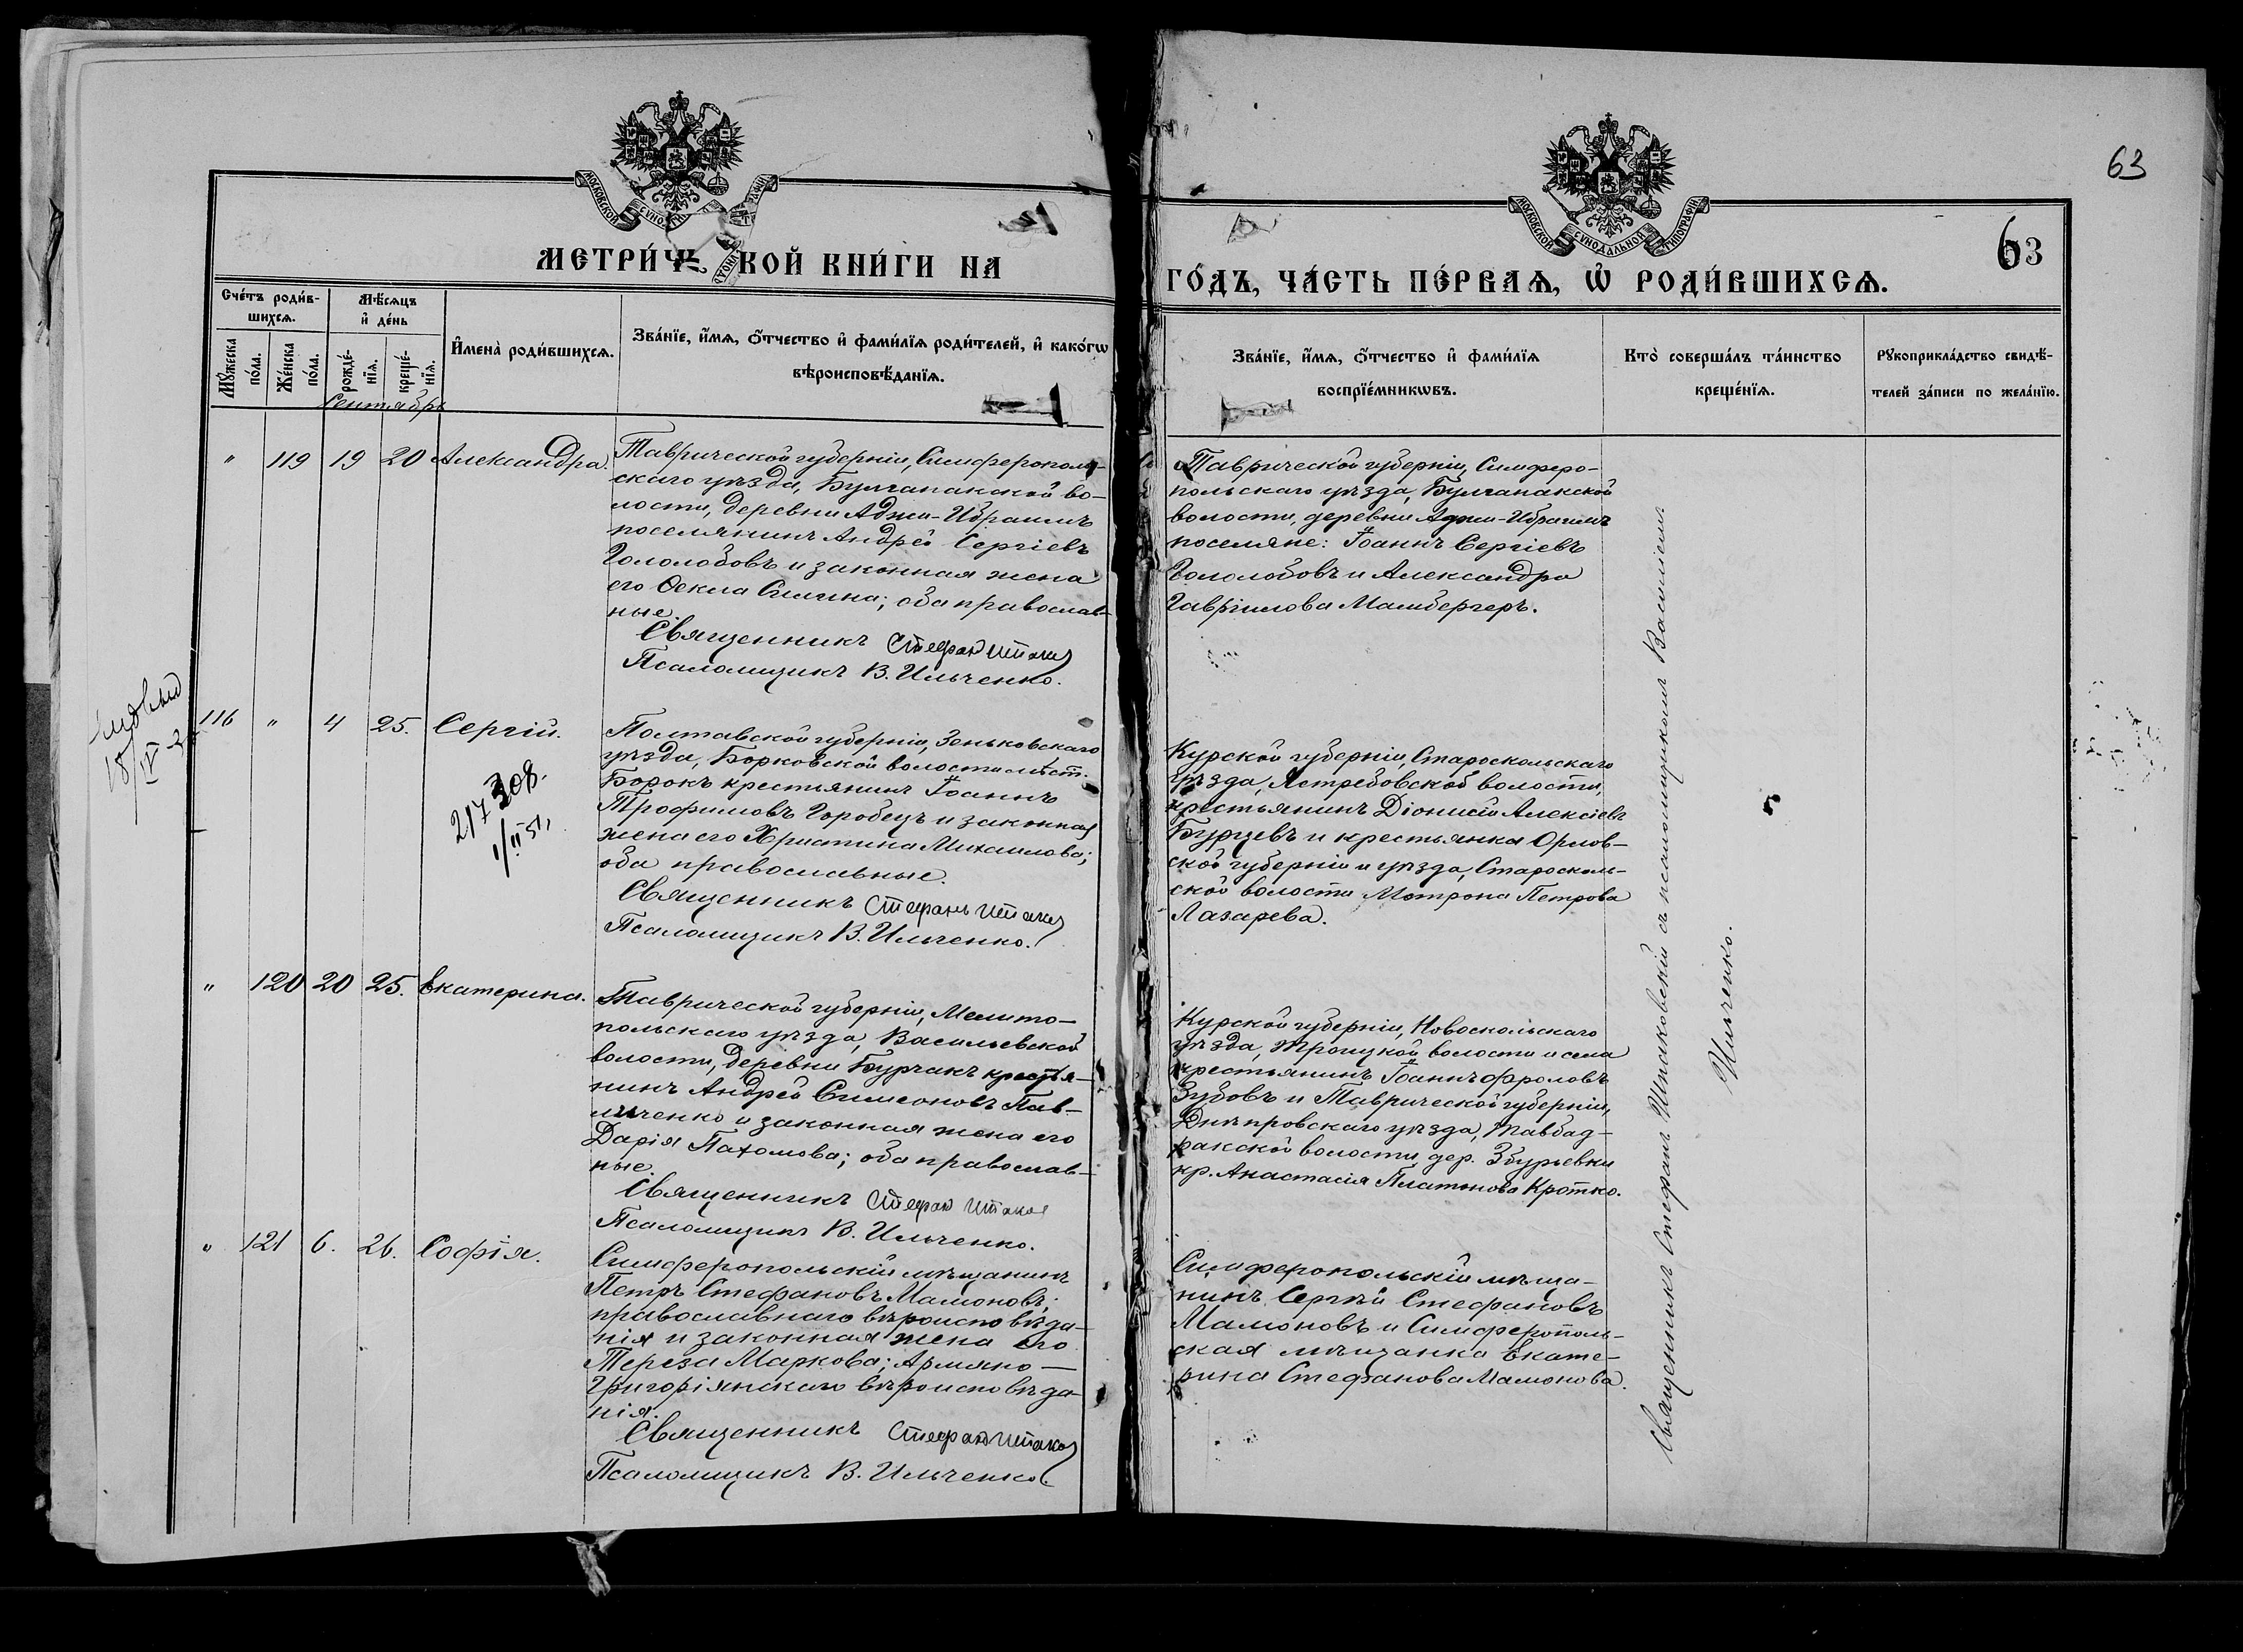 63
63
МОСКОВСКОЙ СѴНОДАЛЬНОЙ ТИПОГРАФІИ
МЕТРИ́Ч КОЙ КНИ́ГИ НА
ГО́ДЪ, ЧА́СТЬ ПЕ́РВАѦ, Ѡ҆ РОДИ́ВШИХСѦ.
Сче́тъ роди́в-
шихсѧ.
Мꙋ́жеска по́ла.
Же́нска по́ла.
Мѣ́сѧцъ
и҆ де́нь
рожде́-
нїѧ.
креще́-
нїѧ.
И҆мена̀ роди́вшихсѧ.
Зва́нїе, и҆́мѧ, ѻ҆́тчество и҆ фами́лїѧ роди́телей, и҆ како́гѡ
вѣроисповѣ́данїѧ.
Зва́нїе, и҆́мѧ, ѻ҆́тчество и҆ фами́лїѧ
воспрїе́мникѡвъ.
Кто̀ соверша́лъ та́инство
креще́нїѧ.
Рꙋкоприкла́дство свидѣ́-
телей за́писи по жела́нїю.
Сентябрь
" 119 19 20 Александра.
Таврической губерніи, Симферополь-
скаго уѣзда, Булганакской во-
лости, деревни Аджи-Ибраимъ
поселянинъ Андрей Сергіевъ
Гололобовъ и законная жена
его Ѳекла Силина; оба православ-
ные.
Священникъ Стефан Шпаков
Псаломщикъ В. Ильченко.
Таврической губерніи, Симферо-
польскаго уѣзда, Булганакской
волости, деревни Аджи-Ибрагимъ
поселяне: Іоаннъ Сергіевъ
Гололобовъ и Александра
Гавріилова Мамбергеръ.
116 " 4 25. Сергій.
18/IV
217308.
1/II 51,
Полтавской губерніи, Зеньковскаго
уѣзда, Борковской волости мѣст.
Борокъ крестьянинъ Іоаннъ
Трофимовъ Горобецъ и законная
жена его Христина Михаилова;
оба православные.
Священникъ Стефанъ Шпаков
Псаломщикъ В. Ильченко.
Курской губерніи, Староскольскаго
уѣзда, Ястребовской волости,
крестьянинъ Діонисій Алексіевъ
Бурцевъ и крестьянка Орлов-
ской губерніи и уѣзда, Старосколь-
ской волости Мотрона Петрова
Лазарева.
" 120 20 25. Екатерина.
Таврической губерніи, Мелито-
польскаго уѣзда, Васильевской
волости, деревни Бурчакъ крестья-
нинъ Андрей Симеоновъ Пав-
личенко и законная жена его
Дарія Пахомова; оба православ-
ные.
Священникъ Стефан Шпаков
Псаломщикъ В. Ильченко.
Курской губерніи, Новоскольскаго
уѣзда, Троицкой волости и села
крестьянинъ Іоаннъ Фроловъ
Зубовъ и Таврической губерніи,
Днѣпровскаго уѣзда,
волости дер. Збурьевки
кр. Анастасія Платонова Кротко.
" 121 6. 26. Софія.
Симферопольскій мѣщанинъ
Петръ Стефановъ Мамоновъ;
православнаго вѣроисповѣда-
нія и законная жена его
Тереза Маркова; Армяно-
Григоріянскаго вѣроисповѣда-
нія.
Священникъ Стефан Шпаков
Псаломщикъ В. Ильченко.
Симферопольскій мѣща-
нинъ Сергѣй Стефановъ
Мамоновъ и Симферополь-
ская мѣщанка Екате-
рина Стефанова Мамонова.
Священникъ Стефанъ Шпаковскій съ псаломщикомъ Василіемъ
Ильченко.